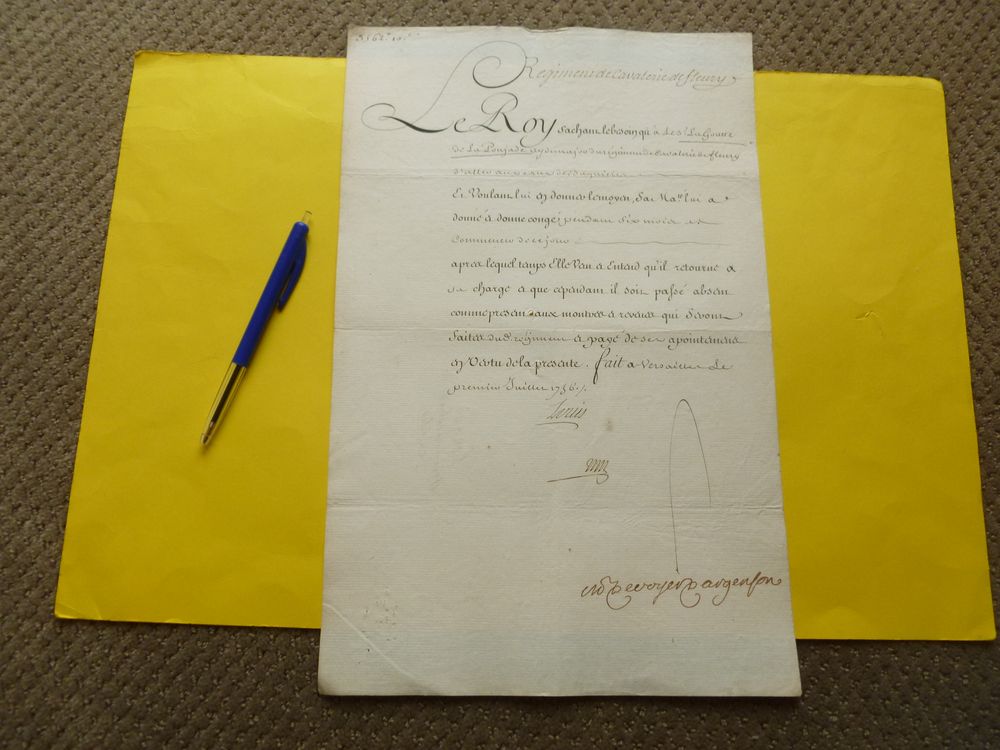 Regiment de Cavalerie de fleury
Le Roy sachant le besoin qu'a le S.r La Goutte
de La Poujade ayde major du régiment de Cavalerie de fleury
d'aller aux eaux de
Et Voulant lui en donner le moyen, Sa Ma.té lui a
donné et donne congé pendant six mois à
Commencer de ce jour
après lequel temps Elle Veut et Entend qu'il retourne à
sa charge et que cependant il soit passé absent
comme present aux montres et reveues qui seront
faites dud. régiment et payé de ses apointemens
en Vertu de la presente. fait a Versailles Le
premier Juillet 1756.
Louis
M. de voyer d'argenson